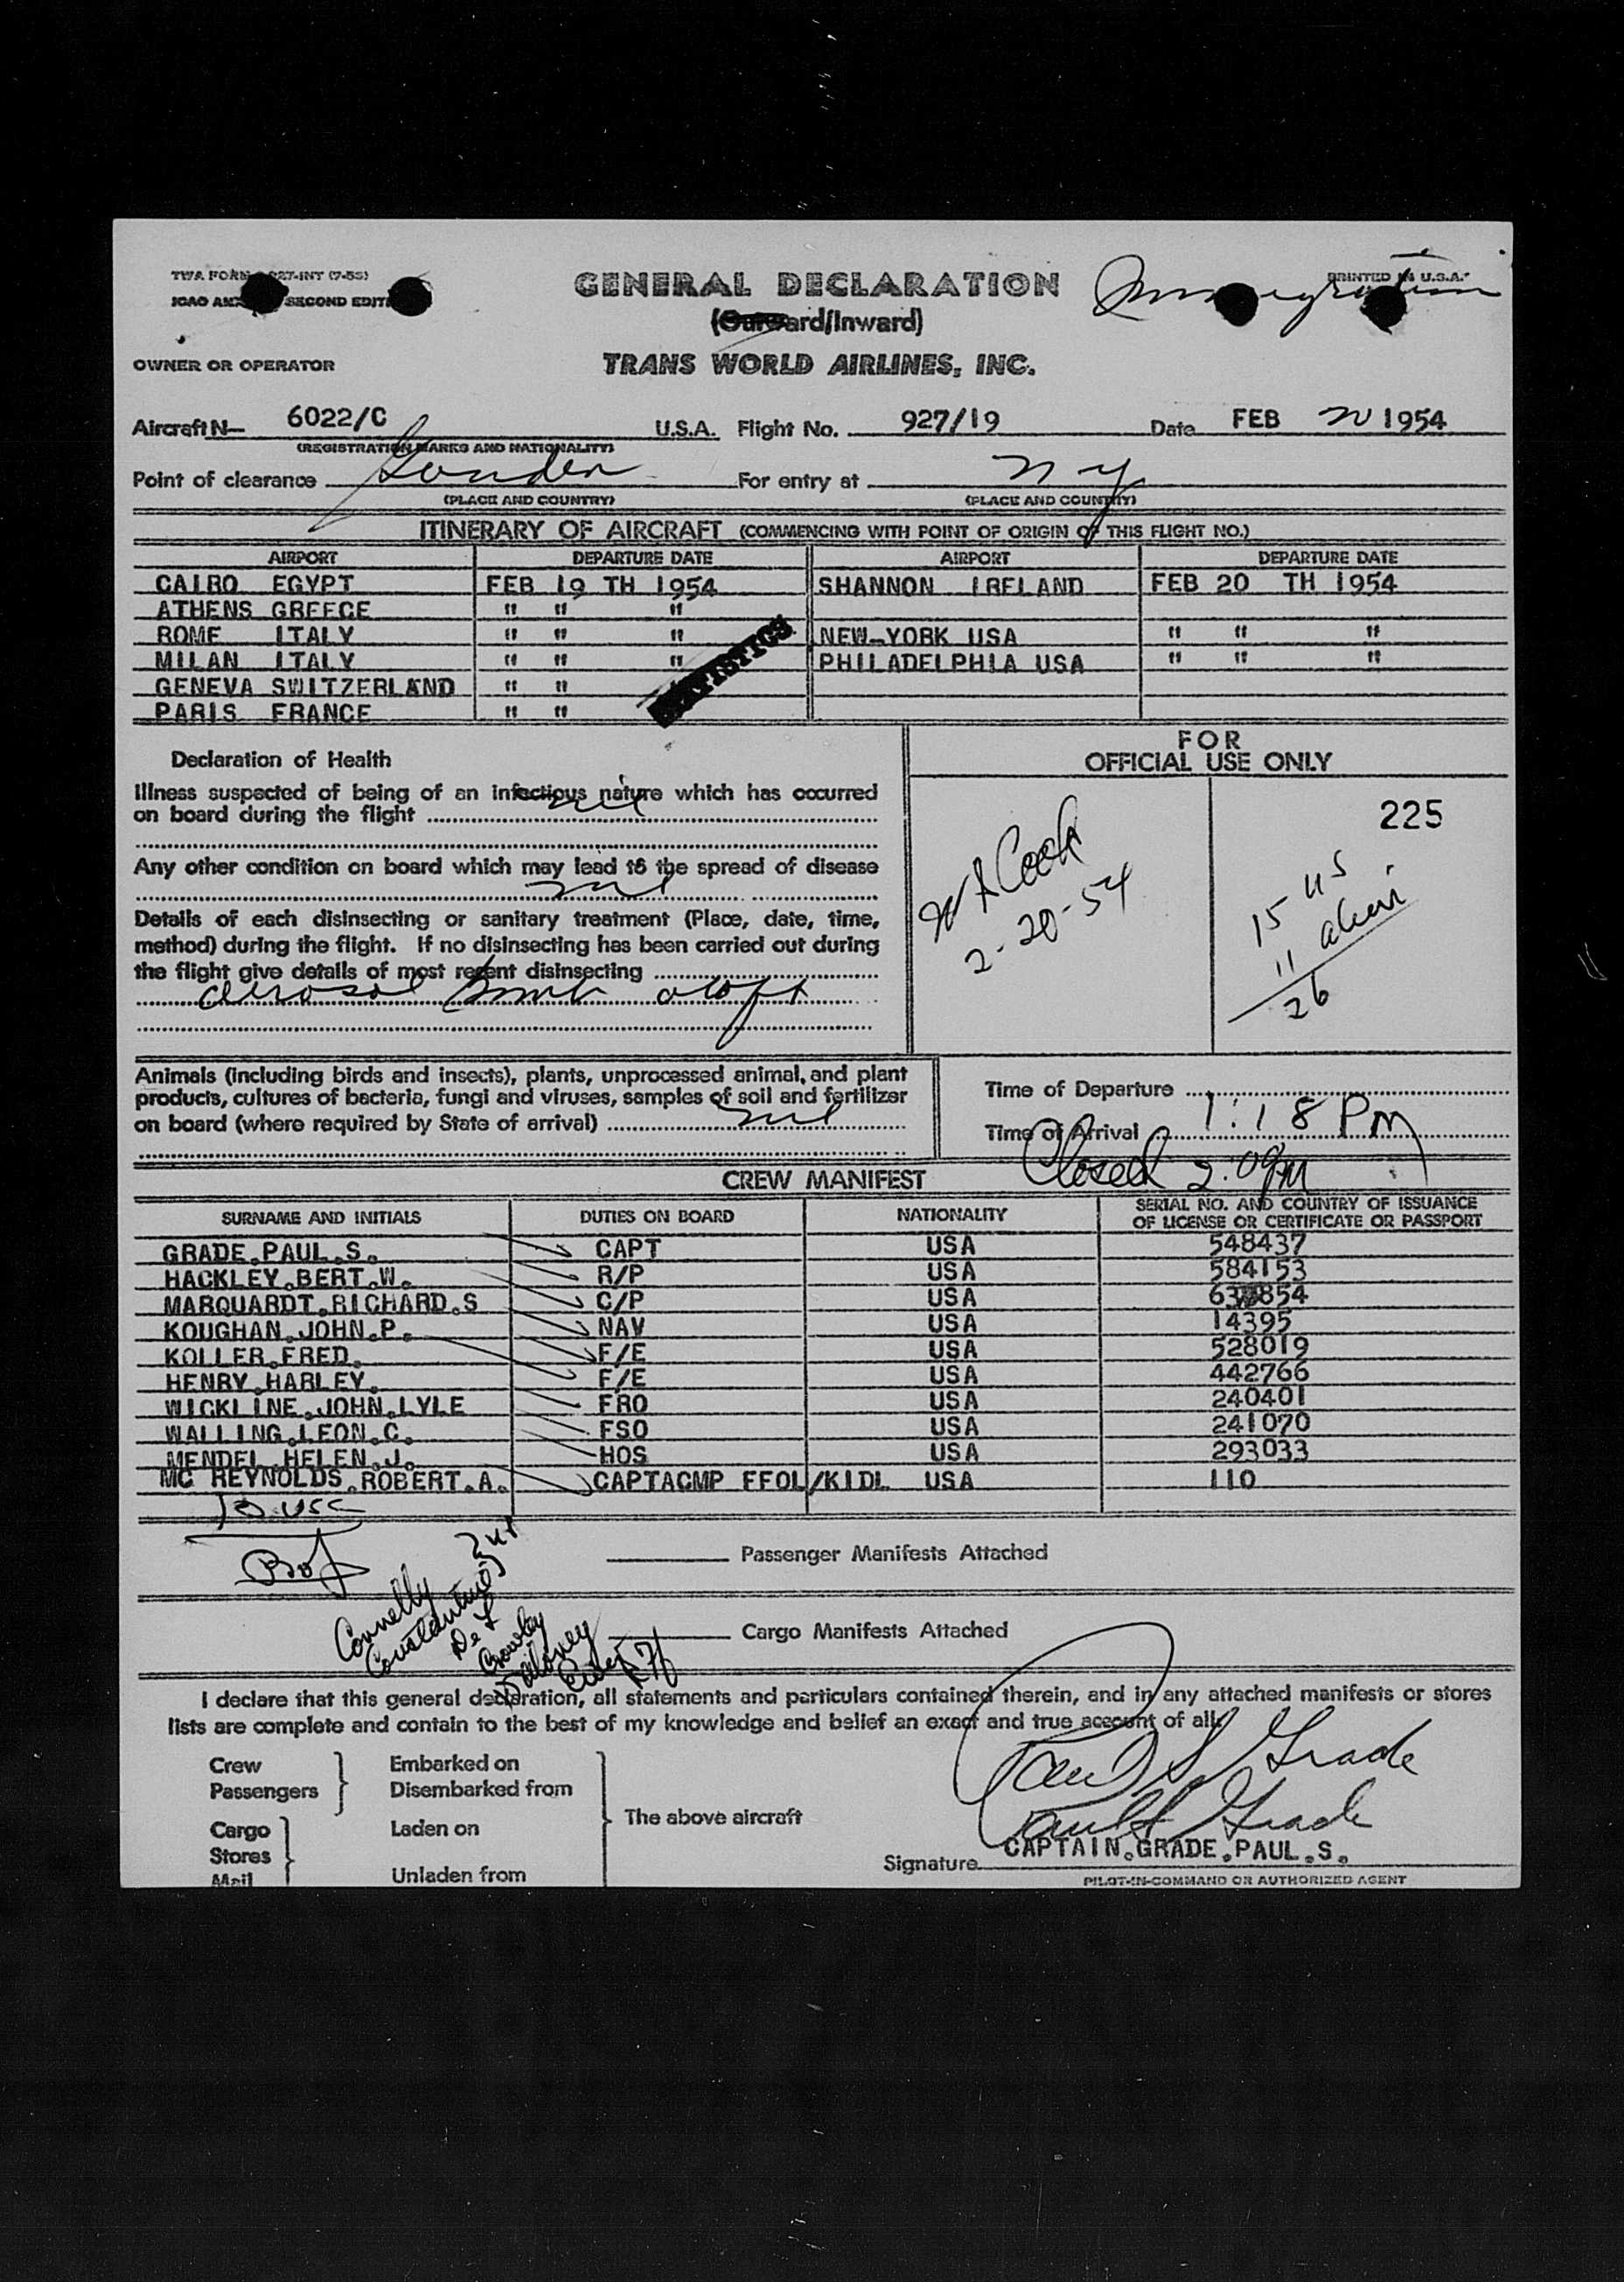 TWA FORM 927-INT (7-53)
ICAO SECOND EDIT
GENERAL DECLARATION
Immigration
PRINTED IN U.S.A.
(Outward/Inward)
OWNER OR OPERATOR
TRANS WORLD AIRLINES, INC.
Aircraft N— 6022/C U.S.A. Flight No. 927/19 Date FEB 20 1954
(REGISTRATION MARKS AND NATIONALITY)
Point of clearance For entry at NY
(PLACE AND COUNTRY) (PLACE AND COUNTRY)
ITINERARY OF AIRCRAFT (COMMENCING WITH POINT OF ORIGIN OF THIS FLIGHT NO.)
AIRPORT DEPARTURE DATE AIRPORT DEPARTURE DATE
CAIRO EGYPT FEB 19 TH 1954 SHANNON IRELAND FEB 20 TH 1954
ATHENS GREECE " " "
ROME ITALY " " " NEW-YORK USA " " "
MILAN ITALY " " " PHILADELPHIA USA " " "
GENEVA SWITZERLAND " "
PARIS FRANCE " "
STATISTICS
Declaration of Health
FOR
OFFICIAL USE ONLY
Illness suspected of being of an infectious nature which has occurred
on board during the flight nil
Any other condition on board which may lead to the spread of disease
nil
Details of each disinsecting or sanitary treatment (Place, date, time,
method) during the flight. If no disinsecting has been carried out during
the flight give details of most recent disinsecting
aerosol bomb aloft
Cook
2-20-54
225
15 US
11 alien
26
Animals (including birds and insects), plants, unprocessed animal, and plant
products, cultures of bacteria, fungi and viruses, samples of soil and fertilizer
on board (where required by State of arrival) nil
Time of Departure
Time of Arrival 1:18 PM
Closed 2:09 PM
CREW MANIFEST
SURNAME AND INITIALS DUTIES ON BOARD NATIONALITY SERIAL NO. AND COUNTRY OF ISSUANCE
OF LICENSE OR CERTIFICATE OR PASSPORT
GRADE.PAUL.S. CAPT USA 548437
HACKLEY.BERT.W. R/P USA 584153
MARQUARDT.RICHARD.S C/P USA
KOUGHAN.JOHN.P. NAV USA 14395
KOLLER.FRED. F/E USA 528019
HENRY.HARLEY. F/E USA 442766
WICKLINE.JOHN.LYLE FRO USA 240401
WALLING.LEON.C. FSO USA 241070
MENDEL.HELEN.J. HOS USA 293033
MC REYNOLDS.ROBERT.A. CAPTACMP FFOL/KIDL USA 110
10 USC
Passenger Manifests Attached
Connelly
Constantino
De L
Crowley
Maloney
Cargo Manifests Attached
I declare that this general declaration, all statements and particulars contained therein, and in any attached manifests or stores
lists are complete and contain to the best of my knowledge and belief an exact and true account of all.
Crew Embarked on
Passengers Disembarked from
Cargo Laden on
Stores
Mail Unladen from
The above aircraft
Paul S Grade
Paul S Grade
Signature CAPTAIN.GRADE.PAUL.S.
PILOT-IN-COMMAND OR AUTHORIZED AGENT